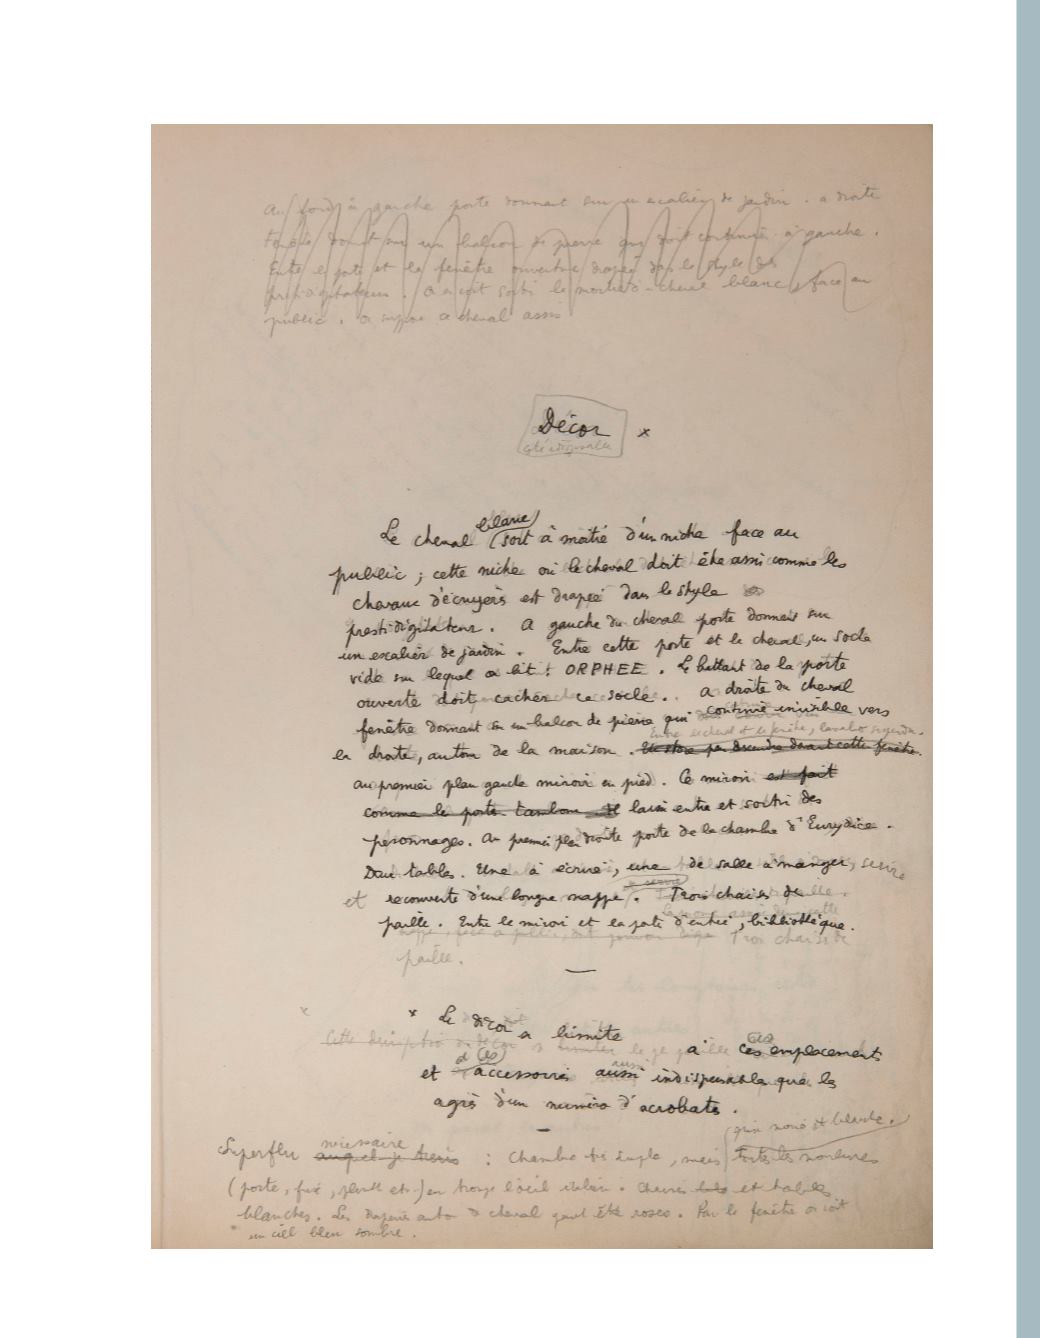 Au fond à gauche porte donnant sur un escalier de jardin. a droite
fenêtre donnant sur un balcon de pierre qui doit continuer à gauche.
Entre la porte et la fenêtre ouverture drapée dans le style des
prestidigitateurs. On voit sortir le cheval blanc, face au
public. On suppose le cheval assis
Décor x
blanc
Le cheval sort à moitié d'un niche face au
public ; cette niche où le cheval doit être assis comme les
chevaux d'écuyers est drapée dans le style des
prestidigitateurs. A gauche du cheval porte donnant sur
un escalier de jardin. Entre cette porte et le cheval, un socle
vide sur lequel on lit : ORPHEE. Le battant de la porte
ouverte doit cacher ce socle. A droite du cheval
fenêtre donnant sur un balcon de pierre qui continue invisible vers
Entre le cheval et la fenêtre, lavabo
la droite, autour de la maison. Un store peu descendre devant cette fenêtre.
au premier plan gauche miroir en pied. Ce miroir est fait
comme les portes tambour Il laisse entre et sortir des
personnages. Au premier plan droite porte de la chambre d'Eurydice.
Deux tables. Une à écrire, une de salle à manger, servie
servie
et recouverte d'une longue nappe. Trois chaises de
paille. Entre le miroir et la porte d'entrée, bibliothèque.
Trois chaises de
paille.
x
x Le décor se limite à ces emplacements
Cette description du décor
et d'accessoires aussi indispensables que les
agrès d'un numéro d'acrobate.
peint noires et blanche.
nécessaire
Superflu auquel je tiens : Chambre très simple, mais toutes les moulures
(porte, etc.) en trompe l'oeil italien. Chaises et tables
blanches. Les draperies autour du cheval peuvent être roses. Par la fenêtre on voit
un ciel bleu sombre.